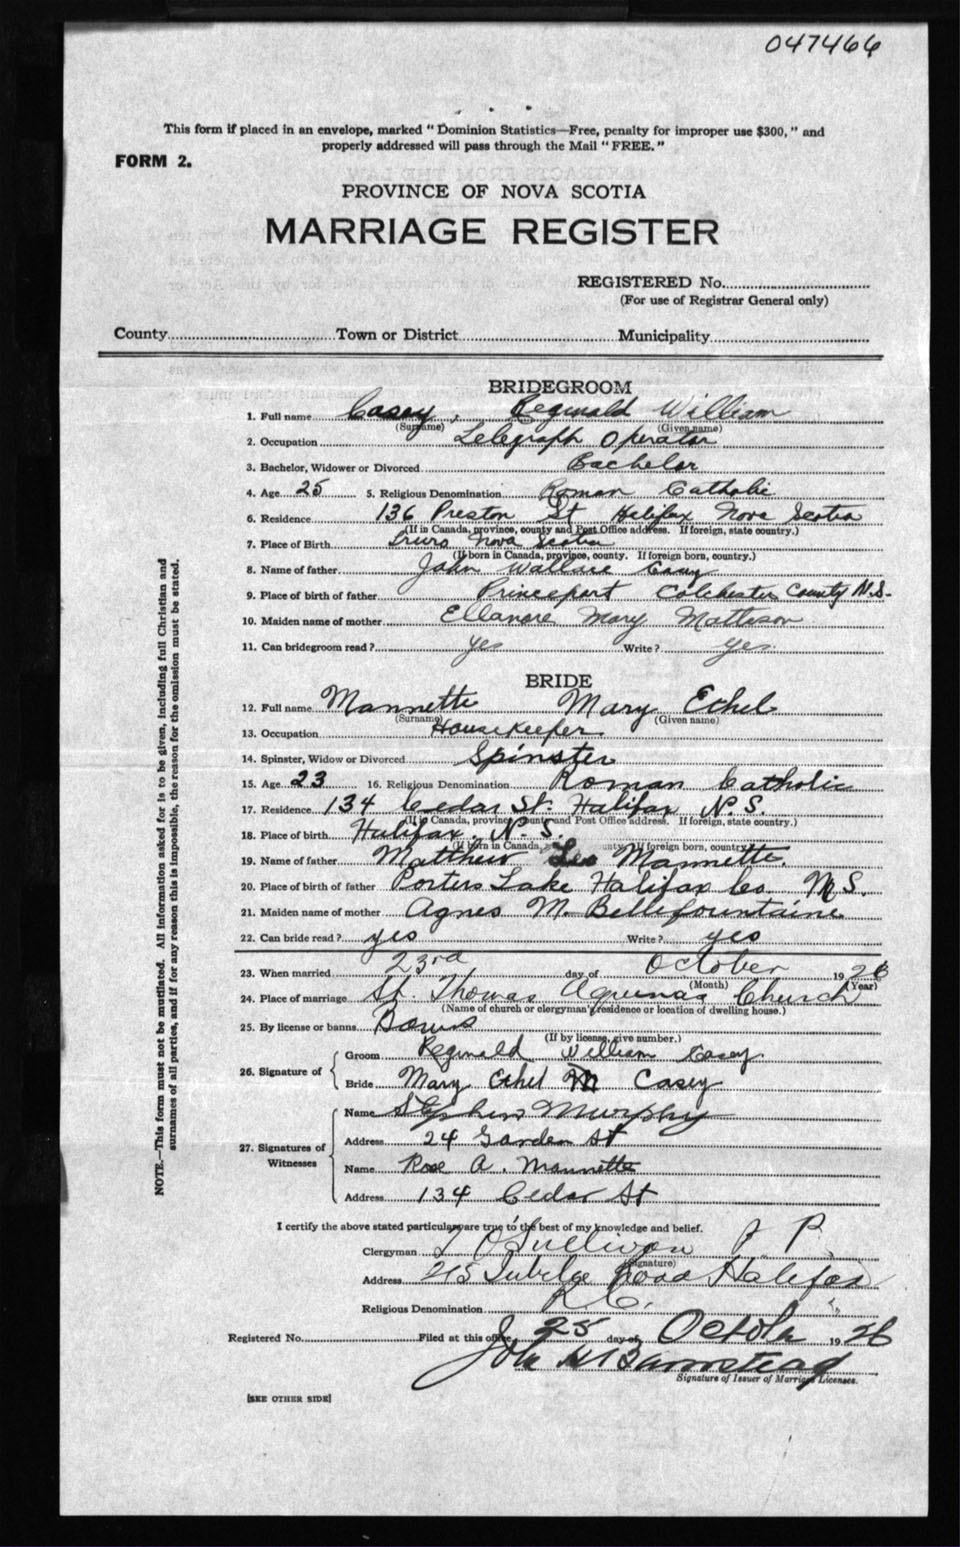 047466
This form if placed in an envelope, marked "Dominion Statistics—Free, penalty for improper use $300," and
properly addressed will pass through the Mail "FREE."
FORM 2.
PROVINCE OF NOVA SCOTIA
MARRIAGE REGISTER
REGISTERED No.
(For use of Registrar General only)
County Town or District Municipality
BRIDEGROOM
1. Full name Casey, Reginald William
(Surname) (Given name)
2. Occupation Telegraph Operator
3. Bachelor, Widower or Divorced Bachelor
4. Age 25 5. Religious Denomination Roman Catholic
6. Residence 136 Preston St Halifax Nova Scotia
(If in Canada, province, county and Post Office address. If foreign, state country.)
7. Place of Birth Truro Nova Scotia
(If born in Canada, province, county. If foreign born, country.)
8. Name of father John Wallace Casey
9. Place of birth of father Princeport Colchester County N.S.
10. Maiden name of mother Ellanore Mary Mattison
11. Can bridegroom read? yes Write? yes.
BRIDE
12. Full name Mannette Mary Ethel
(Surname) (Given name)
13. Occupation Housekeeper
14. Spinster, Widow or Divorced Spinster
15. Age 23 16. Religious Denomination Roman Catholic
17. Residence 134 Cedar St. Halifax N.S.
(If in Canada, province, county and Post Office address. If foreign, state country.)
18. Place of birth Halifax, N.S.
(If born in Canada, county. If foreign born, country.)
19. Name of father Matthew Leo Mannette.
20. Place of birth of father Porters Lake Halifax Co. N.S.
21. Maiden name of mother Agnes M. Bellefountaine
22. Can bride read? yes Write? yes
23. When married 23rd day of October 1926
(Month) (Year)
24. Place of marriage St. Thomas Aquinas Church
(Name of church or clergyman's residence or location of dwelling house.)
25. By license or banns Banns
(If by license, give number.)
26. Signature of Groom Reginald William Casey.
Bride Mary Ethel M Casey
27. Signatures of Witnesses Name Stephen Murphy
Address 24 Garden St
Name Rose A. Mannette
Address 134 Cedar St
I certify the above stated particulars are true to the best of my knowledge and belief.
Clergyman T O'Sullivan P. P.
(Signature)
Address 215 Jubilee Road Halifax
Religious Denomination R C.
Registered No. Filed at this office 25 day of October 1926
John H Barnstead
Signature of Issuer of Marriage Licenses.
[SEE OTHER SIDE]
NOTE.—This form must not be mutilated. All information asked for is to be given, including full Christian and
surnames of all parties, and if for any reason this is impossible, the reason for the omission must be stated.